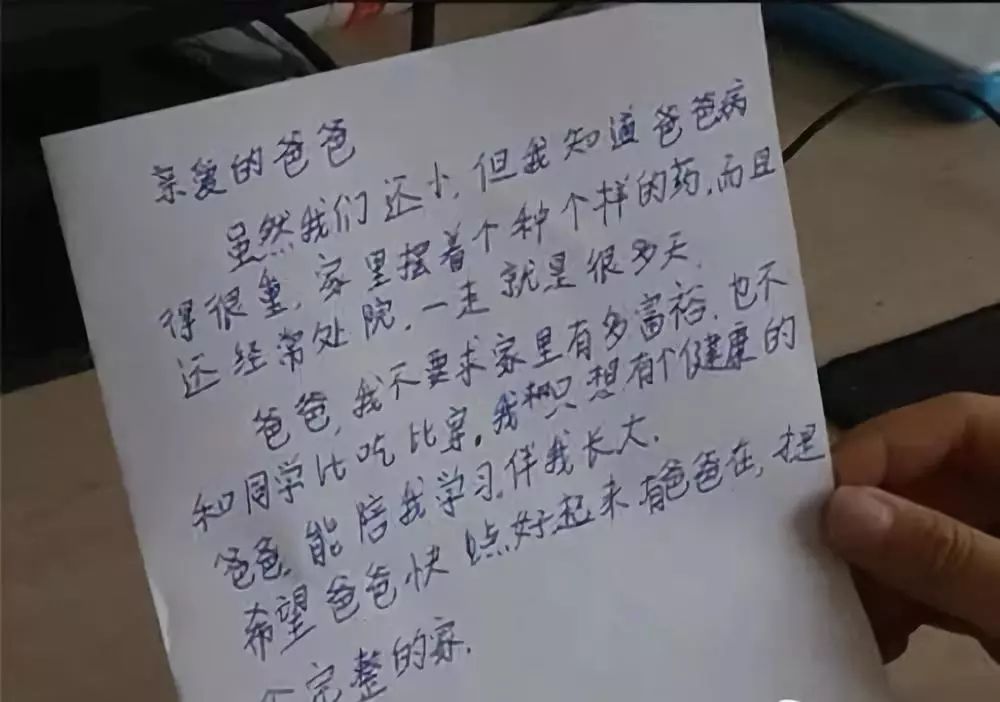 亲爱的爸爸
虽然我们还小,但我知道爸爸病
得很重,家里摆着个种个样的药,而且
还经常处院,一走就是很多天.
爸爸,我不要求家里有多富裕,也不
和同学比吃比穿。我只想有个健康的
爸爸,能陪我学习,伴我长大.
希望爸爸快点好起来有爸爸在,提
个完整的家.